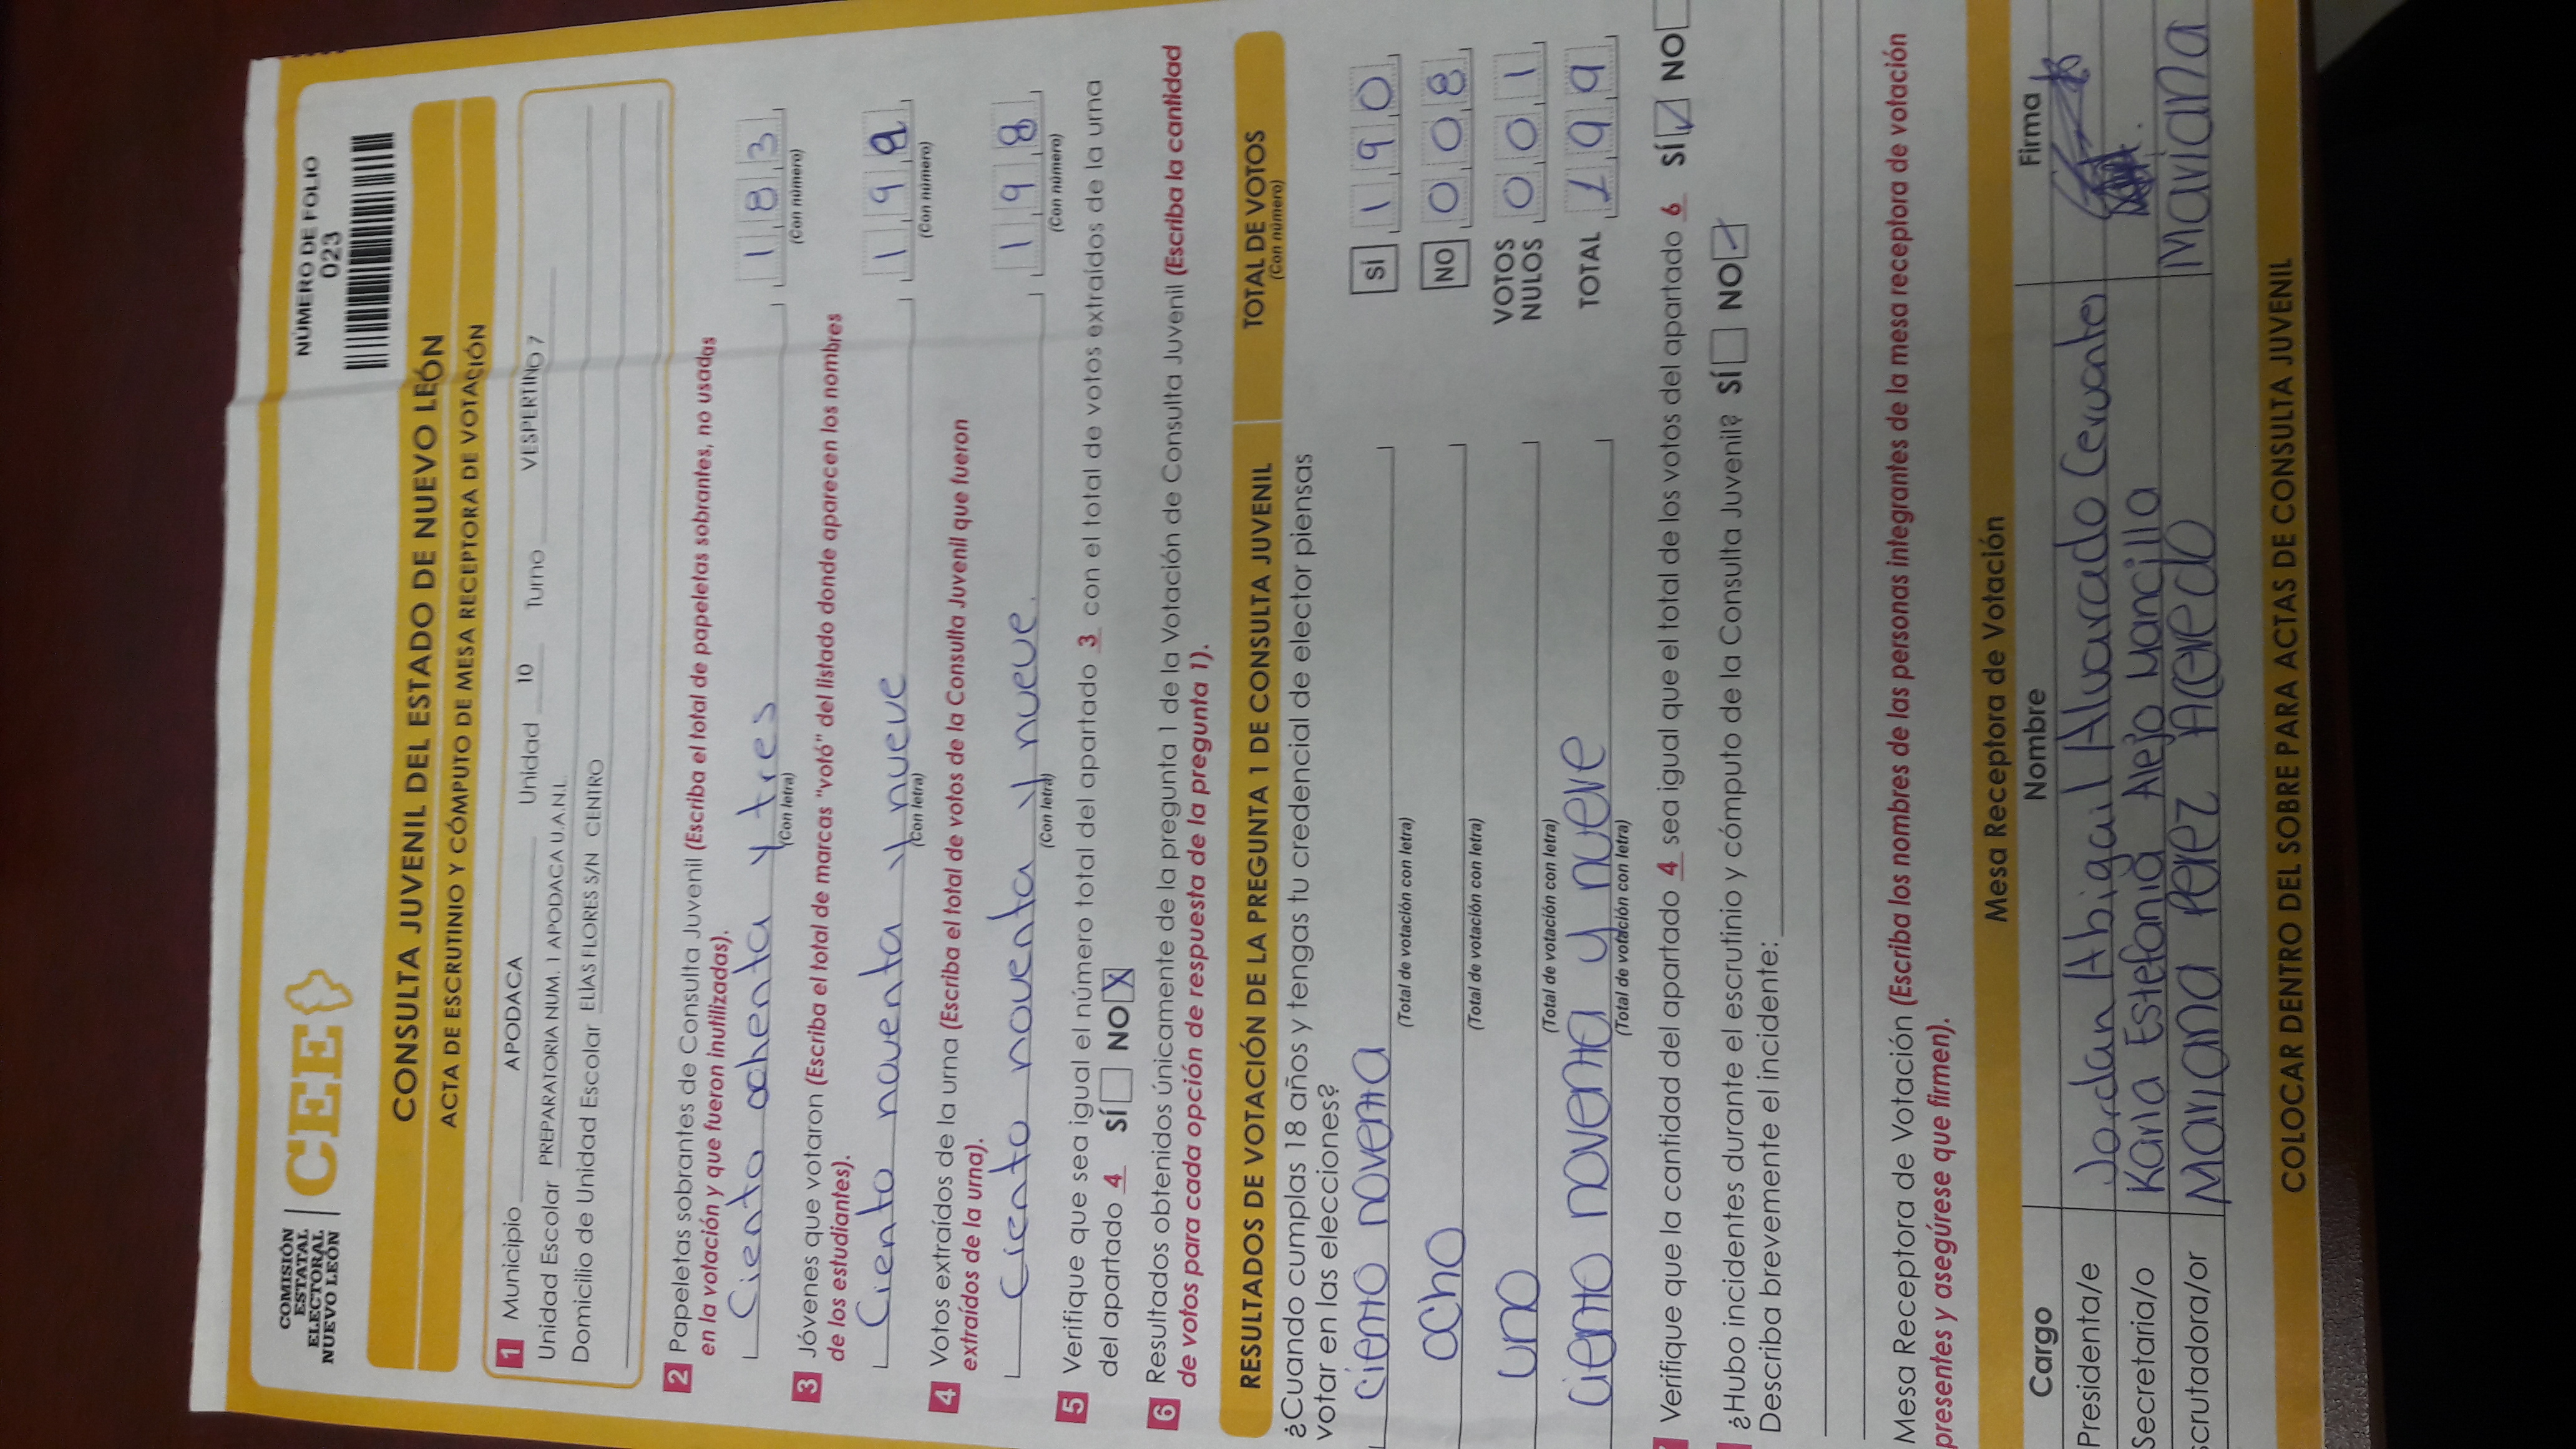 COMISIÓN
ESTATAL
ELECTORAL
NUEVO LEÓN
CEE
NÚMERO DE FOLIO
023
CONSULTA JUVENIL DEL ESTADO DE NUEVO LEÓN
ACTA DE ESCRUTINIO Y CÓMPUTO DE MESA RECEPTORA DE VOTACIÓN
1 Municipio APODACA Unidad 10 Turno VESPERTINO 7
Unidad Escolar PREPARATORIA NUM. 1 APODACA U.A.N.L.
Domicilio de Unidad Escolar ELIAS FLORES S/N CENTRO
2 Papeletas sobrantes de Consulta Juvenil (Escriba el total de papeletas sobrantes, no usadas
en la votación y que fueron inutilizadas).
Ciento ochenta y tres 183
(Con letra) (Con número)
3 Jóvenes que votaron (Escriba el total de marcas "votó" del listado donde aparecen los nombres
de los estudiantes).
Ciento noventa y nueve 199
(Con letra) (Con número)
4 Votos extraídos de la urna (Escriba el total de votos de la Consulta Juvenil que fueron
extraídos de la urna).
Ciento noventa y nueve. 198
(Con letra) (Con número)
5 Verifique que sea igual el número total del apartado 3 con el total de votos extraídos de la una
del apartado 4 SÍ NO X
6 Resultados obtenidos únicamente de la pregunta 1 de la Votación de Consulta Juvenil (Escriba la cantidad
de votos para cada opción de respuesta de la pregunta 1).
RESULTADOS DE VOTACIÓN DE LA PREGUNTA 1 DE CONSULTA JUVENIL TOTAL DE VOTOS
(Con número)
¿Cuando cumplas 18 años y tengas tu credencial de elector piensas
votar en las elecciones?
ciento noventa SÍ 190
(Total de votación con letra)
ocho NO 008
(Total de votación con letra)
uno VOTOS NULOS 001
(Total de votación con letra)
ciento noventa y nueve TOTAL 199
(Total de votación con letra)
Verifique que la cantidad del apartado 4 sea igual que el total de los votos del apartado 6 SÍ ✓ NO
¿Hubo incidentes durante el escrutinio y cómputo de la Consulta Juvenil? SÍ NO ✓
Describa brevemente el incidente:
Mesa Receptora de Votación (Escriba los nombres de las personas integrantes de la mesa receptora de votación
presentes y asegúrese que firmen).
Mesa Receptora de Votación
Cargo Nombre Firma
Presidenta/e Jordan Abigail Alvarado Cervantes
Secretaria/o Karla Estefania Alejo Mancilla
scrutadora/or Mariana Perez Acevedo Mariana
COLOCAR DENTRO DEL SOBRE PARA ACTAS DE CONSULTA JUVENIL